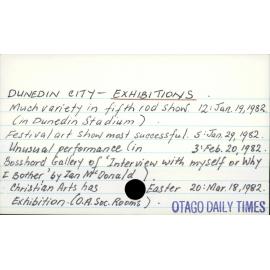 DUNEDIN CITY - EXHIBITIONS.
Much variety in fifth rod show. 12: Jan. 19, 1982
(in Dunedin Stadium).
Festival art show most successful. 5: Jan. 29, 1982.
Unusual performance (in 3: Feb. 20, 1982.
Bosshard Gallery of 'Interview with myself or Why
I Bother' by Ian McDonald).
Christian Arts has Easter 20: Mar. 18, 1982.
Exhibition. (O.A. Soc. Rooms).
OTAGO DAILY TIMES